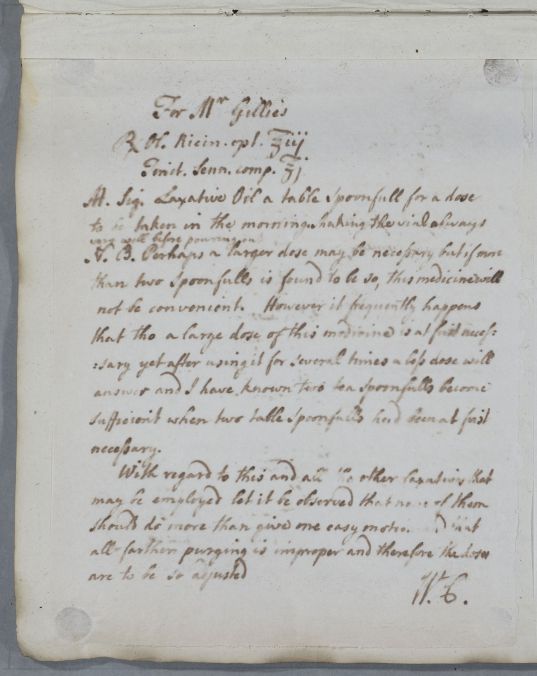 For Mr Gillies
℞ Ol. Ricin. opt. ℥iij
Tinct. Senn. comp. ℥j.
M. Sig. Laxative Oil a table Spoonfull for a dose
to be taken in the morning shaking the vial always
very well before pouring
N. B. Perhaps a larger dose may be necessary but if more
than two Spoonfulls is found to be so, this medicine will
not be convenient. However it frequently happens
that tho a large dose of this medicine is at first neces=
=sary yet after using it for several times a less dose will
answer and I have known two tea spoonfulls become
sufficient when two table Spoonfulls had been at first
necessary.
With regard to this and all the other laxatives that
may be employed let it be observed that none of them
should do more than give one easy motion and that
all farther purging is improper and therefore the doses
are to be so adjusted
W. C.